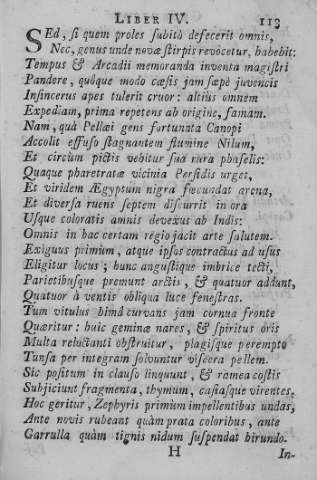 LIBER IV. 113
SEd, si quem proles subitò defecerit omnis,
Nec, genus unde novæ stirpis revocetur, habebit:
Tempus & Arcadii memoranda inventa magistri
Pandere, quóque modo cæsis jam sæpè juvencis
Insincerus apes tulerit cruor: altiùs omnem
Expediam, prima repetens ab origine, famam.
Nam, quà Pellæi gens fortunata Canopi
Accolit effuso stagnantem flumine Nilum,
Et circùm pictis vehitur sua rura phaselis:
Quaque pharetratæ vicinia Persidis urget,
Et viridem Ægyptum nigra fœcundat arena,
Et diversa ruens septem discurrit in ora
Usque coloratis amnis devexus ab Indis:
Omnis in hac certam regio jacit arte salutem.
Exiguus primùm, atque ipsos contractus ad usus
Eligitur locus; hunc angustique imbrice tecti,
Parietibusque premunt arctis, & quatuor addunt,
Quatuor à ventis obliqua luce fenestras.
Tum vitulus bimâ curvans jam cornua fronte
Quæritur: huic geminæ nares, & spiritus oris
Multa reluctanti obstruitur, plagisque perempto
Tunsa per integram solvuntur viscera pellem.
Sic positum in clauso linquunt, & ramea costis
Subjiciunt fragmenta, thymum, casiasque virentes.
Hoc geritur, Zephyris primùm impellentibus undas,
Ante novis rubeant quàm prata coloribus, ante
Garrulla quàm tignis nidum suspendat hirundo.
H In-